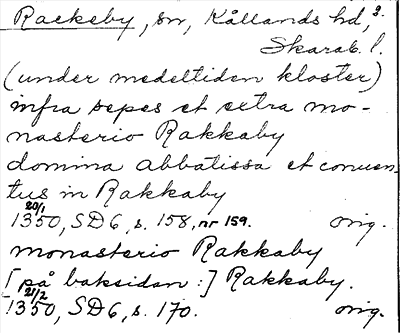 Rackeby, sn, Kållands hd, 3.
Skarab. l.
(under medeltiden kloster)
infra sepes et extra mo-
nasterio Rakkaby
domina abbatissa et conuen-
tus in Rakkaby
20/1
1350, SD6, s. 158, nr 159. orig.
monasterio Rakkaby
[på baksidan:] Rakkaby.
21/2
1350, SD6, s. 170. orig.